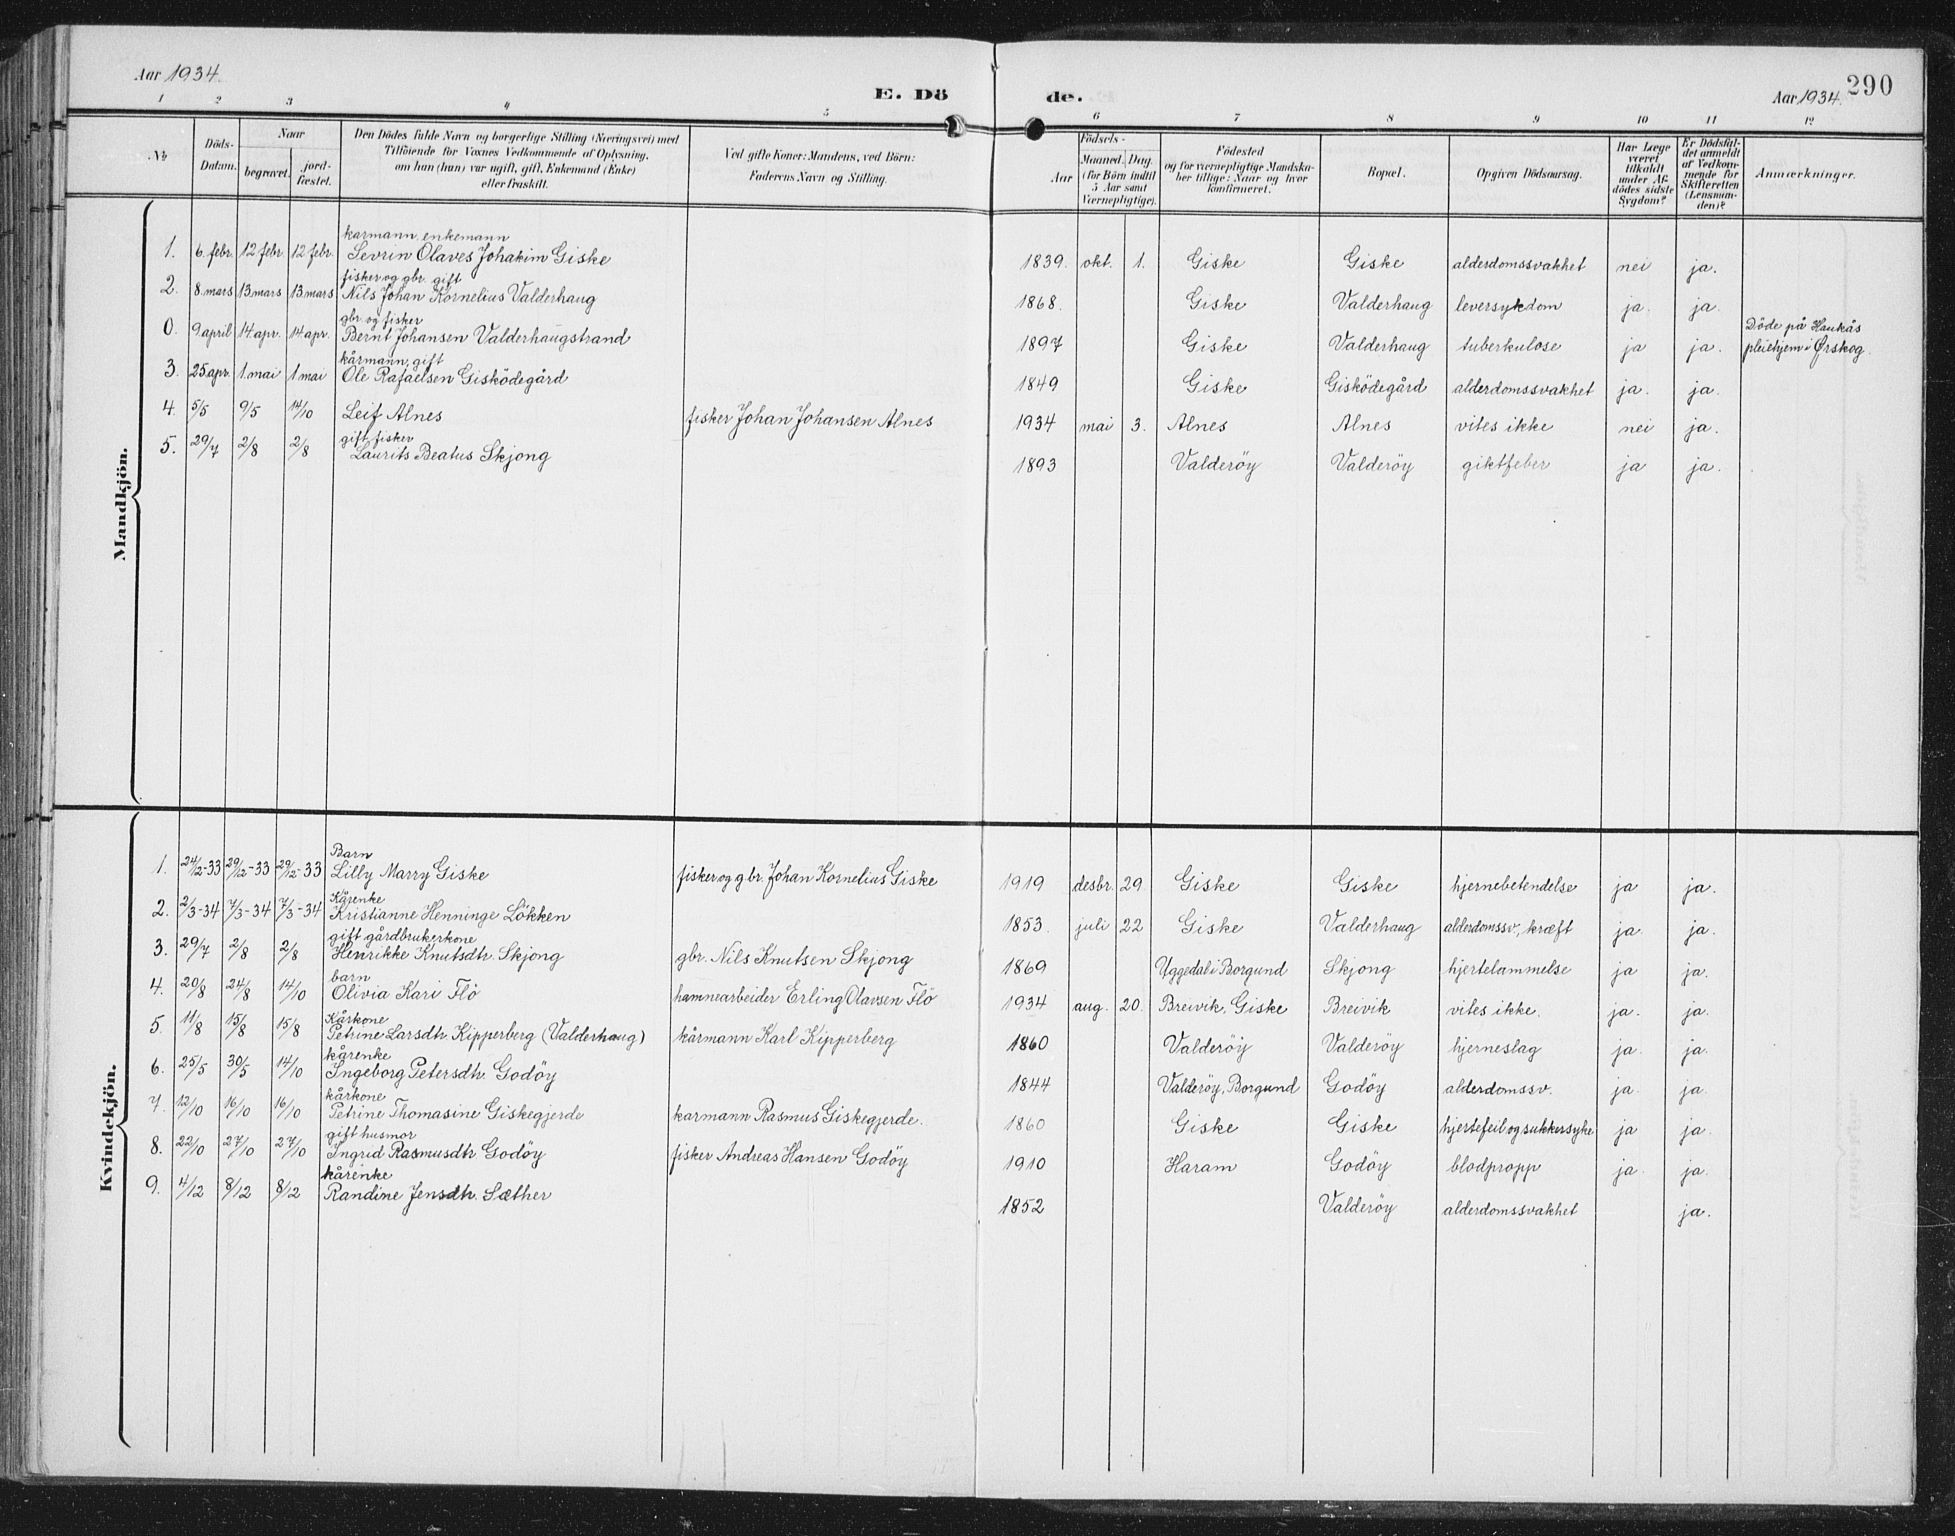 Aar 1934.
E. Dö de.
Aar 1934.
290
1 2 3 4 5 6 7 8 9 10 11 12
№
Döds-Datum.
Naar
begravet.
jord-fæstet.
Den Dödes fulde Navn og borgerlige Stilling (Næringsvei) med
Tilföiende for Voxnes Vedkommende af Oplysning,
om han (hun) var ugift, gift, Enkemand (Enke)
eller fraskilt.
Ved gifte Koner: Mandens, ved Börn:
Faderens Navn og Stilling.
Födsels-
Aar
Maaned. Dag.
(for Börn indtil
5 Aar samt
Værnepligtige).
Födested
og for værnepligtige Mandska-
ber tillige: Naar og hvor
konfirmeret.
Bopæl.
Opgiven Dödsaarsag.
Har Læge
været
tilkaldt
under Af-
dödes sidste
Sygdom?
Er Dödsfal-
det anmeldt
af Vedkom-
mende for
Skifteretten
(Lensman-
den)?
Anmærkninger.
Mandkjön.
karmann, enkemann
1. 6. febr. 12 febr. 12 febr. Sevrin Olaves Johakim Giske 1839. okt. 1. Giske Giske alderdomssvakhet nei ja.
fisker og gbr. gift
2. 8. mars 13 mars 13 mars Nils Johan Kornelius Valderhaug 1868. Giske Valderhaug leversykdom ja. ja.
gbr. og fisker
0. 9. april 14. apr. 14 apr. Bernt Johansen Valderhaugstrand 1897 Giske Valderhaug tuberkulose ja ja. Döde på Haukås
pleiehjem i Ørskog.
kårmann, gift
3. 25. apr. 1. mai 1 mai Ole Rafaelsen Gisködegård 1849 Giske Gisködegård alderdomssvakhet ja. ja.
4. 5/5 9/5 14/10 Leif Alnes fisker Johan Johansen Alnes 1934 mai 3. Alnes Alnes vites ikke nei ja.
gift fisker
5. 29/7 2/8 2/8 Laurits Beatus Skjong 1893 Valderöy Valderöy giktfeber ja ja.
Kvindekjön.
Barn
1. 24/12-33 29/12-33 29/12-33 Lilly Marry Giske fisker og gbr. Johan Kornelius Giske 1919 desbr. 29 Giske Giske hjernebetendelse ja ja.
Kårenke
2. 2/3-34 7/3-34 7/3-34 Kristianne Henninge Lökken 1853. juli 22 Giske Valderhaug alderdomssv., kræft ja. ja.
gift gårdbrukerkone
3. 29/7 2/8 2/8 Henrikke Knutsdtr. Skjong gbr. Nils Knutsen Skjong 1869 Uggedal i Borgund Skjong hjertelammelse ja ja.
barn
4. 20/8 24/8 14/10 Olivia Kari Flö hamnearbeider Erling Olavsen Flö 1934 aug. 20. Breivik, Giske Breivik vites ikke. ja. ja.
Kårkone
5. 11/8 15/8 15/8 Petrine Larsdtr. Kipperberg (Valderhaug) kårmann Karl Kipperberg 1860 Valderöy Valderöy hjerneslag ja. ja.
kårenke
6. 25/5 30/5 14/10 Ingeborg Petersdtr. Godöy 1844 Valderöy, Borgund Godöy alderdomssv. ja. ja.
kårkone
7. 12/10 16/10 16/10 Petrine Thomasine Giskegjerde karmann Rasmus Giskegjerde. 1860 Giske Giske hjertefeil og sukkersyke ja ja.
gift husmor
8. 22/10 27/10 27/10 Ingrid Rasmusdtr Godöy fisker Andreas Hansen Godöy 1910 Haram Godöy blodpropp ja. ja.
kårenke
9. 4/12 8/12 8/12 Randine Jensdtr. Sæther 1852 Valderöy alderdomssvakhet ja.